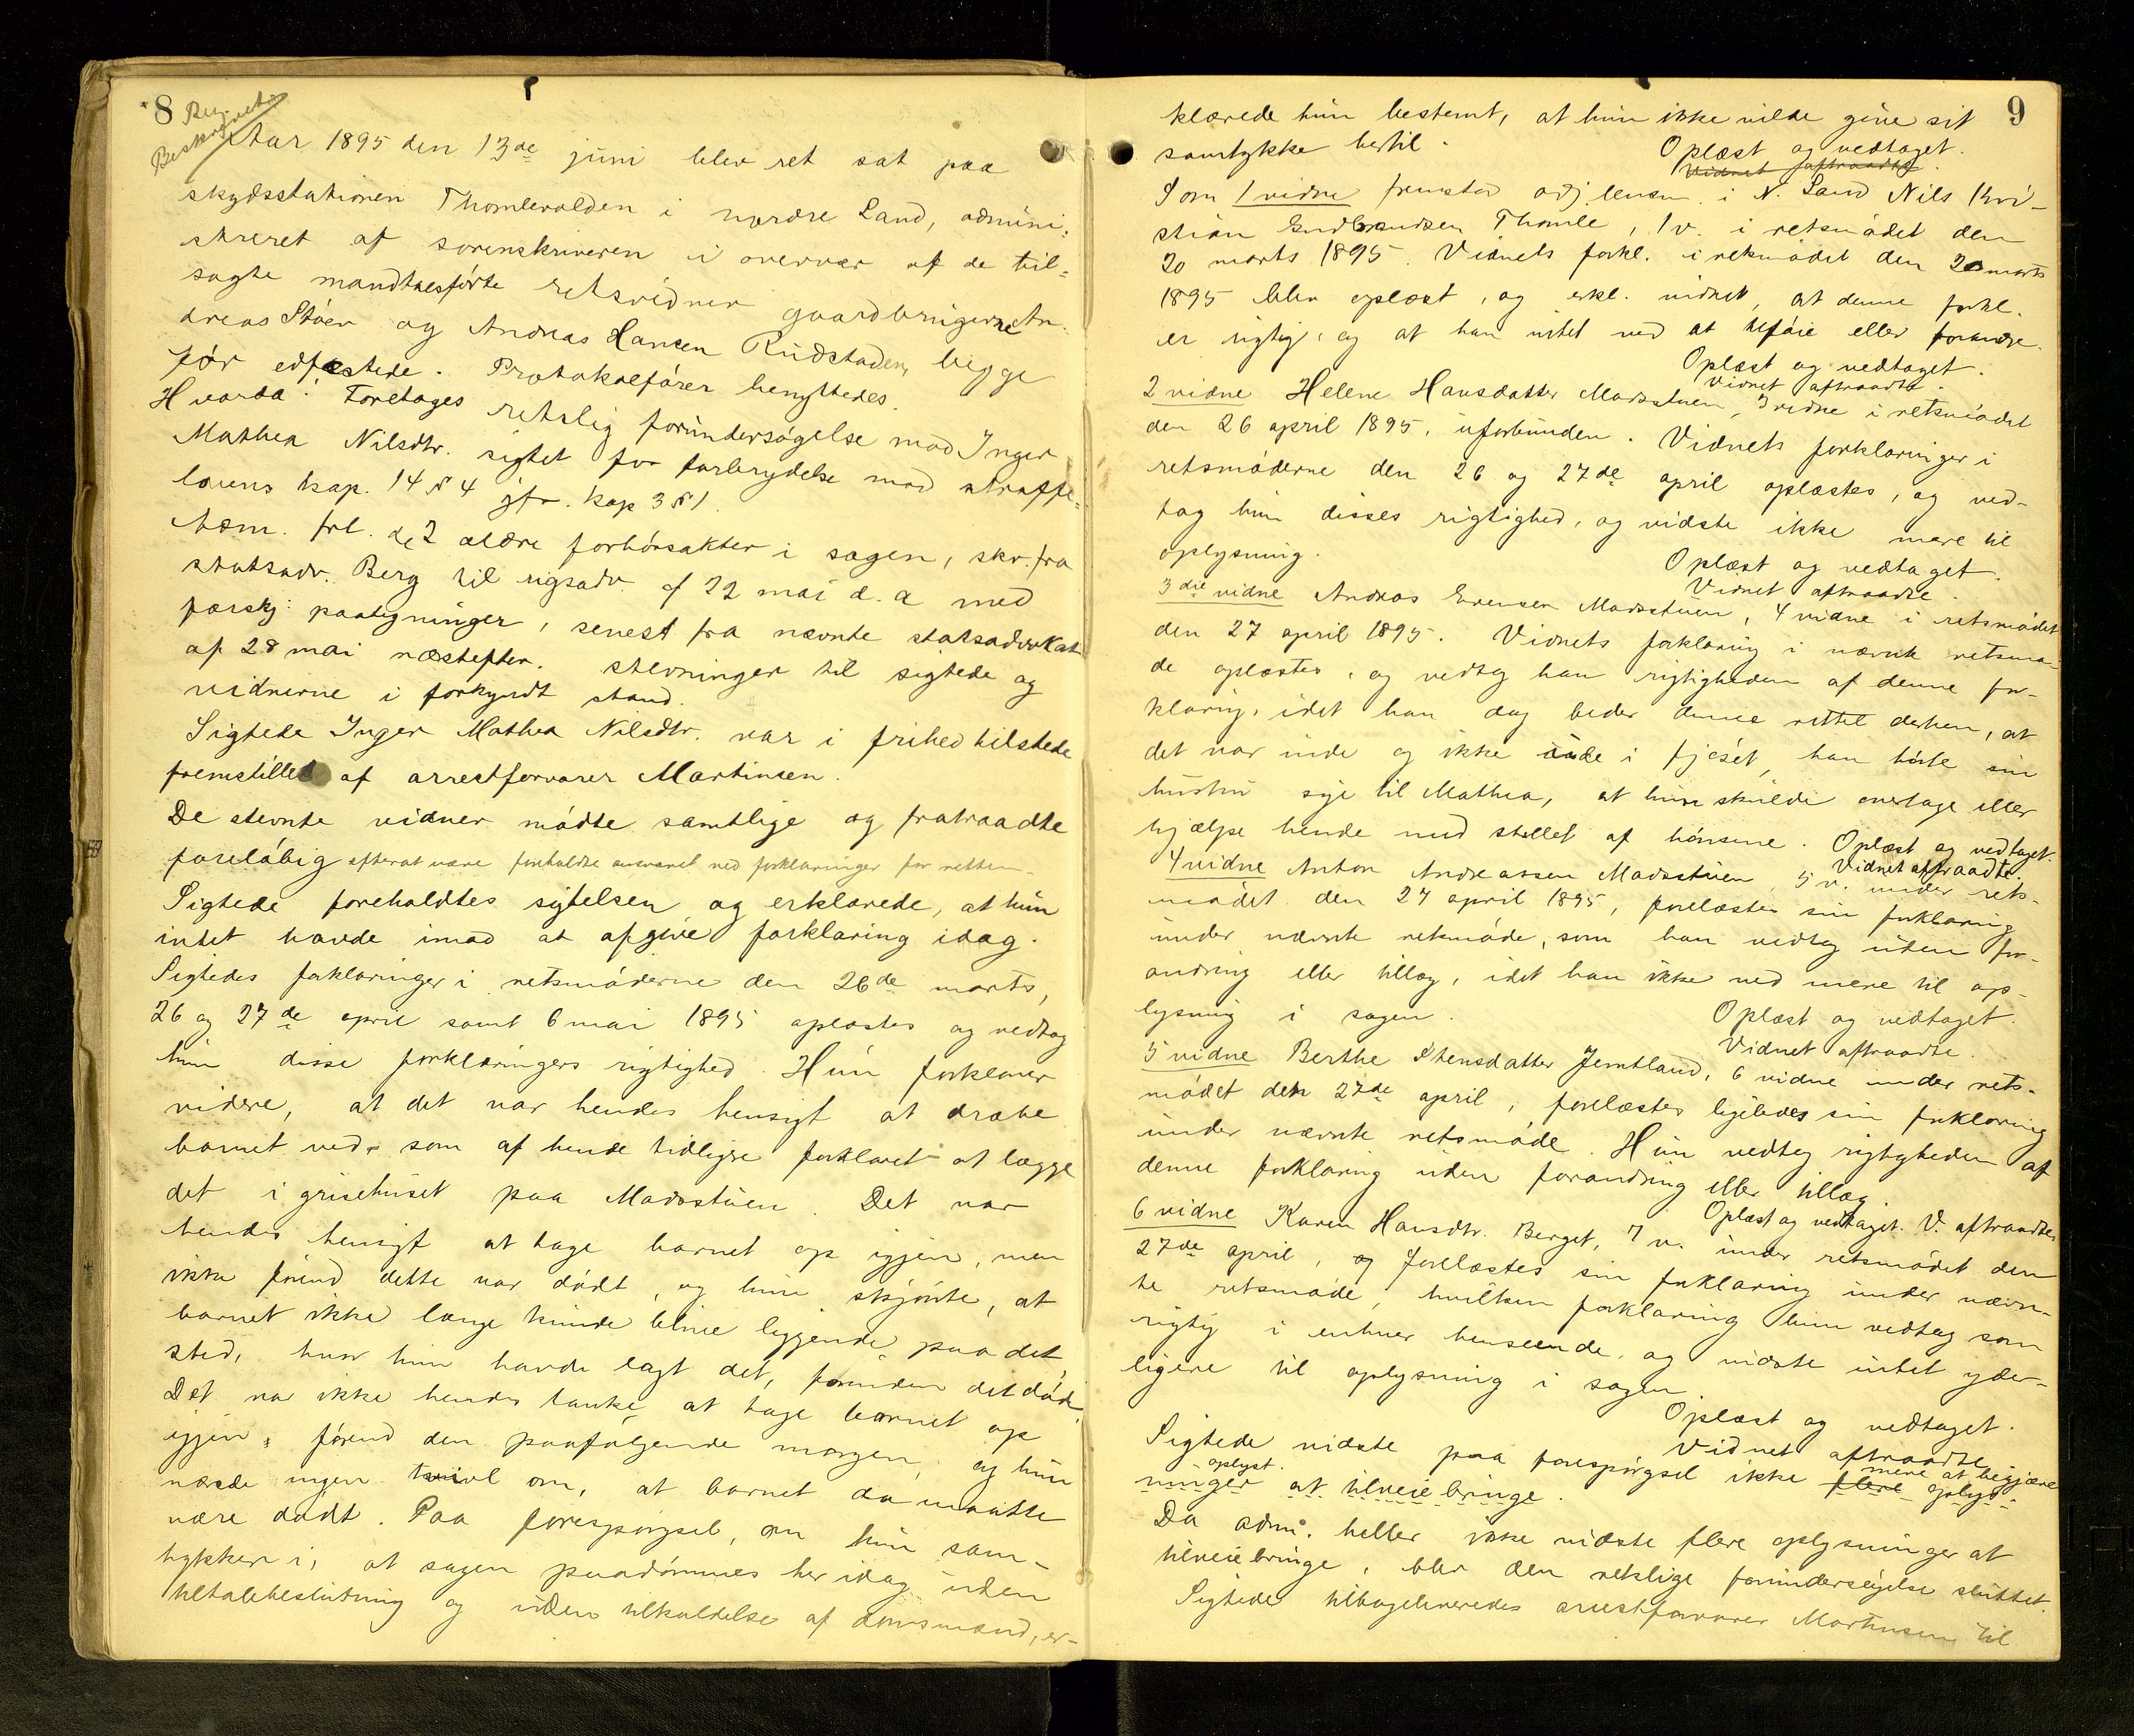 8
Beskrevet
Aar 1895 den 13de juni blev ret sat paa
skydsstationen Thomlevolden i nordre Land, admini-
streret af sorenskriveren i overvær af de til-
sagte mandtalsførte retsvidner gaardbrugerne An-
dreas Støen og Andreas Hansen Rudstaden, begge
før edfæstede. Protokolfører benyttedes.
Hvorda: Foretages retslig forundersøgelse mod Inger
Mathea Nilsdtr. sigtet for forbrydelse mod straffe-
lovens kap. 14 § 4 jfr. kap 3 § 1.
Adm. frl. de 2 ældre forhørsakter i sagen, skr. fra
statsadv. Berg til rigsadv. af 22 mai d. a med
forskj: paategninger, senest fra nævnte statsadvokat
af 28 mai næstefter. stevninger til sigtede og
vidnerne i forkyndt stand.
Sigtede Inger Mathea Nilsdtr. var i frihed tilstede
fremstillet af arrestforvarer Martinsen.
De stevnte vidner mødte samtlige og fratraadte
foreløbig efterat være foreholdte ansvaret ved forklaringer for retten.
Sigtede foreholdtes sigtelsen og erklærede, at hun
intet havde imod at afgive forklaring idag.
Sigtedes forklaringer i retsmøderne den 26de marts,
26 og 27de april samt 6 mai 1895 oplæstes og vedtog
hun disse forklaringers rigtighed. Hun forklarer
videre, at det var hendes hensigt at dræbe
barnet ved, som af hende tidligere forklaret at lægge
det i grisehuset paa Madsstuen. Det var
hendes hensigt at tage barnet op igjen, men
ikke førend dette var dødt, og hun skjønte, at
barnet ikke længe kunde blive liggende paa det
sted, hvor hun havde lagt det, forinden det døde.
Det var ikke hendes tanke at tage barnet op
igjen, førend den paafølgende morgen, og hun
nærede ingen tvivl om, at barnet da maatte
være dødt. Paa forespørgsel, om hun sam-
tykker i, at sagen paadømmes her idag uden
tiltalebeslutning og uden tilkaldelse af domsmænd, er-
9
klærede hun bestemt, at hun ikke vilde give sit
samtykke hertil.
Oplæst og vedtaget.
Vidnet aftraadte.
Som 1 vidne fremstod adj. lensm. i N. Land Nils Kri-
stian Gudbrandsen Thomle, 1 v. i retsmødet den
20 marts 1895. Vidnets forkl. i retsmødet den 20 marts
1895 blev oplæst, og erkl. vidnet, at denne forkl.
er rigtig, og at han intet ved at tilføie eller forandre.
Oplæst og vedtaget.
Vidnet aftraadte.
2 vidne Helene Hansdatter Madsstuen, 3 vidne i retsmødet
den 26 april 1895, uforbunden. Vidnets forklaringer i
retsmøderne den 26 og 27de april oplæstes, og ved-
tog hun disses rigtighed, og vidste ikke mere til
oplysning.
Oplæst og vedtaget.
Vidnet aftraadte.
3die vidne Andreas Evensen Madsstuen, 4 vidne i retsmødet
den 27 april 1895. Vidnets forklaring i nævnte retsmø-
de oplæstes, og vedtog han rigtigheden af denne for-
klaring, idet han dog beder denne rettet derhen, at
det var inde og ikke ude i fjøset, han hørte sin
hustru sige til Mathea, at hun skulde overtage eller
hjælpe hende med stellet af hønsene. Oplæst og vedtaget.
Vidnet aftraadte.
4 vidne Anton Andreassen Madsstuen, 5 v. under rets-
mødet den 27 april 1895, forelæstes sin forklaring
under nævnte retsmøde, som han vedtog uden for-
andring eller tillæg, idet han ikke ved mere til op-
lysning i sagen.
Oplæst og vedtaget.
Vidnet aftraadte.
5 vidne Berthe Stensdatter Jemtland, 6 vidne under rets-
mødet den 27de april, forelæstes ligeledes sin forklaring
under nævnte retsmøde. Hun vedtog rigtigheden af
denne forklaring uden forandring eller tillæg.
Oplæst og vedtaget. V. aftraadte.
6 vidne Karen Hansdtr. Berget, 7 v. under retsmødet den
27de april, og forelæstes sin forklaring under nævn-
te retsmøde, hvilken forklaring hun vedtog som
rigtig i enhver henseende, og vidste intet yder-
ligere til oplysning i sagen.
Oplæst og vedtaget.
Vidnet aftraadte.
Sigtede vidste paa forespørgsel ikke flere oplys-
mere at begjære
oplyst.
ninger at tilveiebringe.
Da adm. heller ikke vidste flere oplysninger at
tilveiebringe, blev den retslige forundersøgelse sluttet.
Sigtede tilbageleveredes arrestforvarer Martinsen til